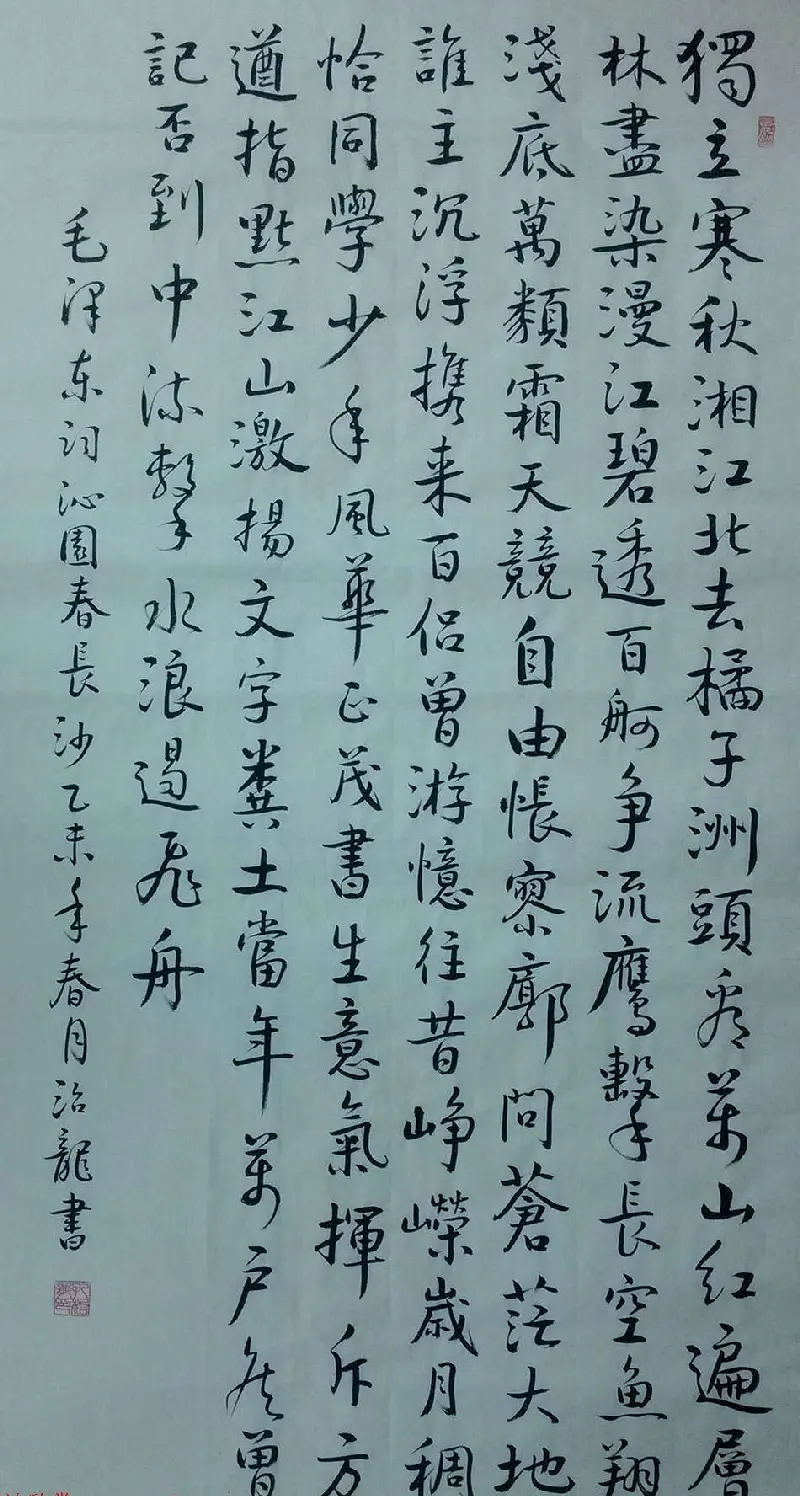 獨立寒秋湘江北去橘子洲頭看萬山紅遍層
林盡染漫江碧透百舸争流鷹擊長空魚翔
淺底萬類霜天競自由悵寥廓問蒼茫大地
誰主沉浮携来百侣曾游憶往昔崢嶸歲月稠
恰同學少年風華正茂書生意氣揮斥方
遒指點江山激揚文字糞土當年萬户侯曾
記否到中流擊水浪遏飛舟
毛澤东词沁園春長沙乙未年春月治龍書